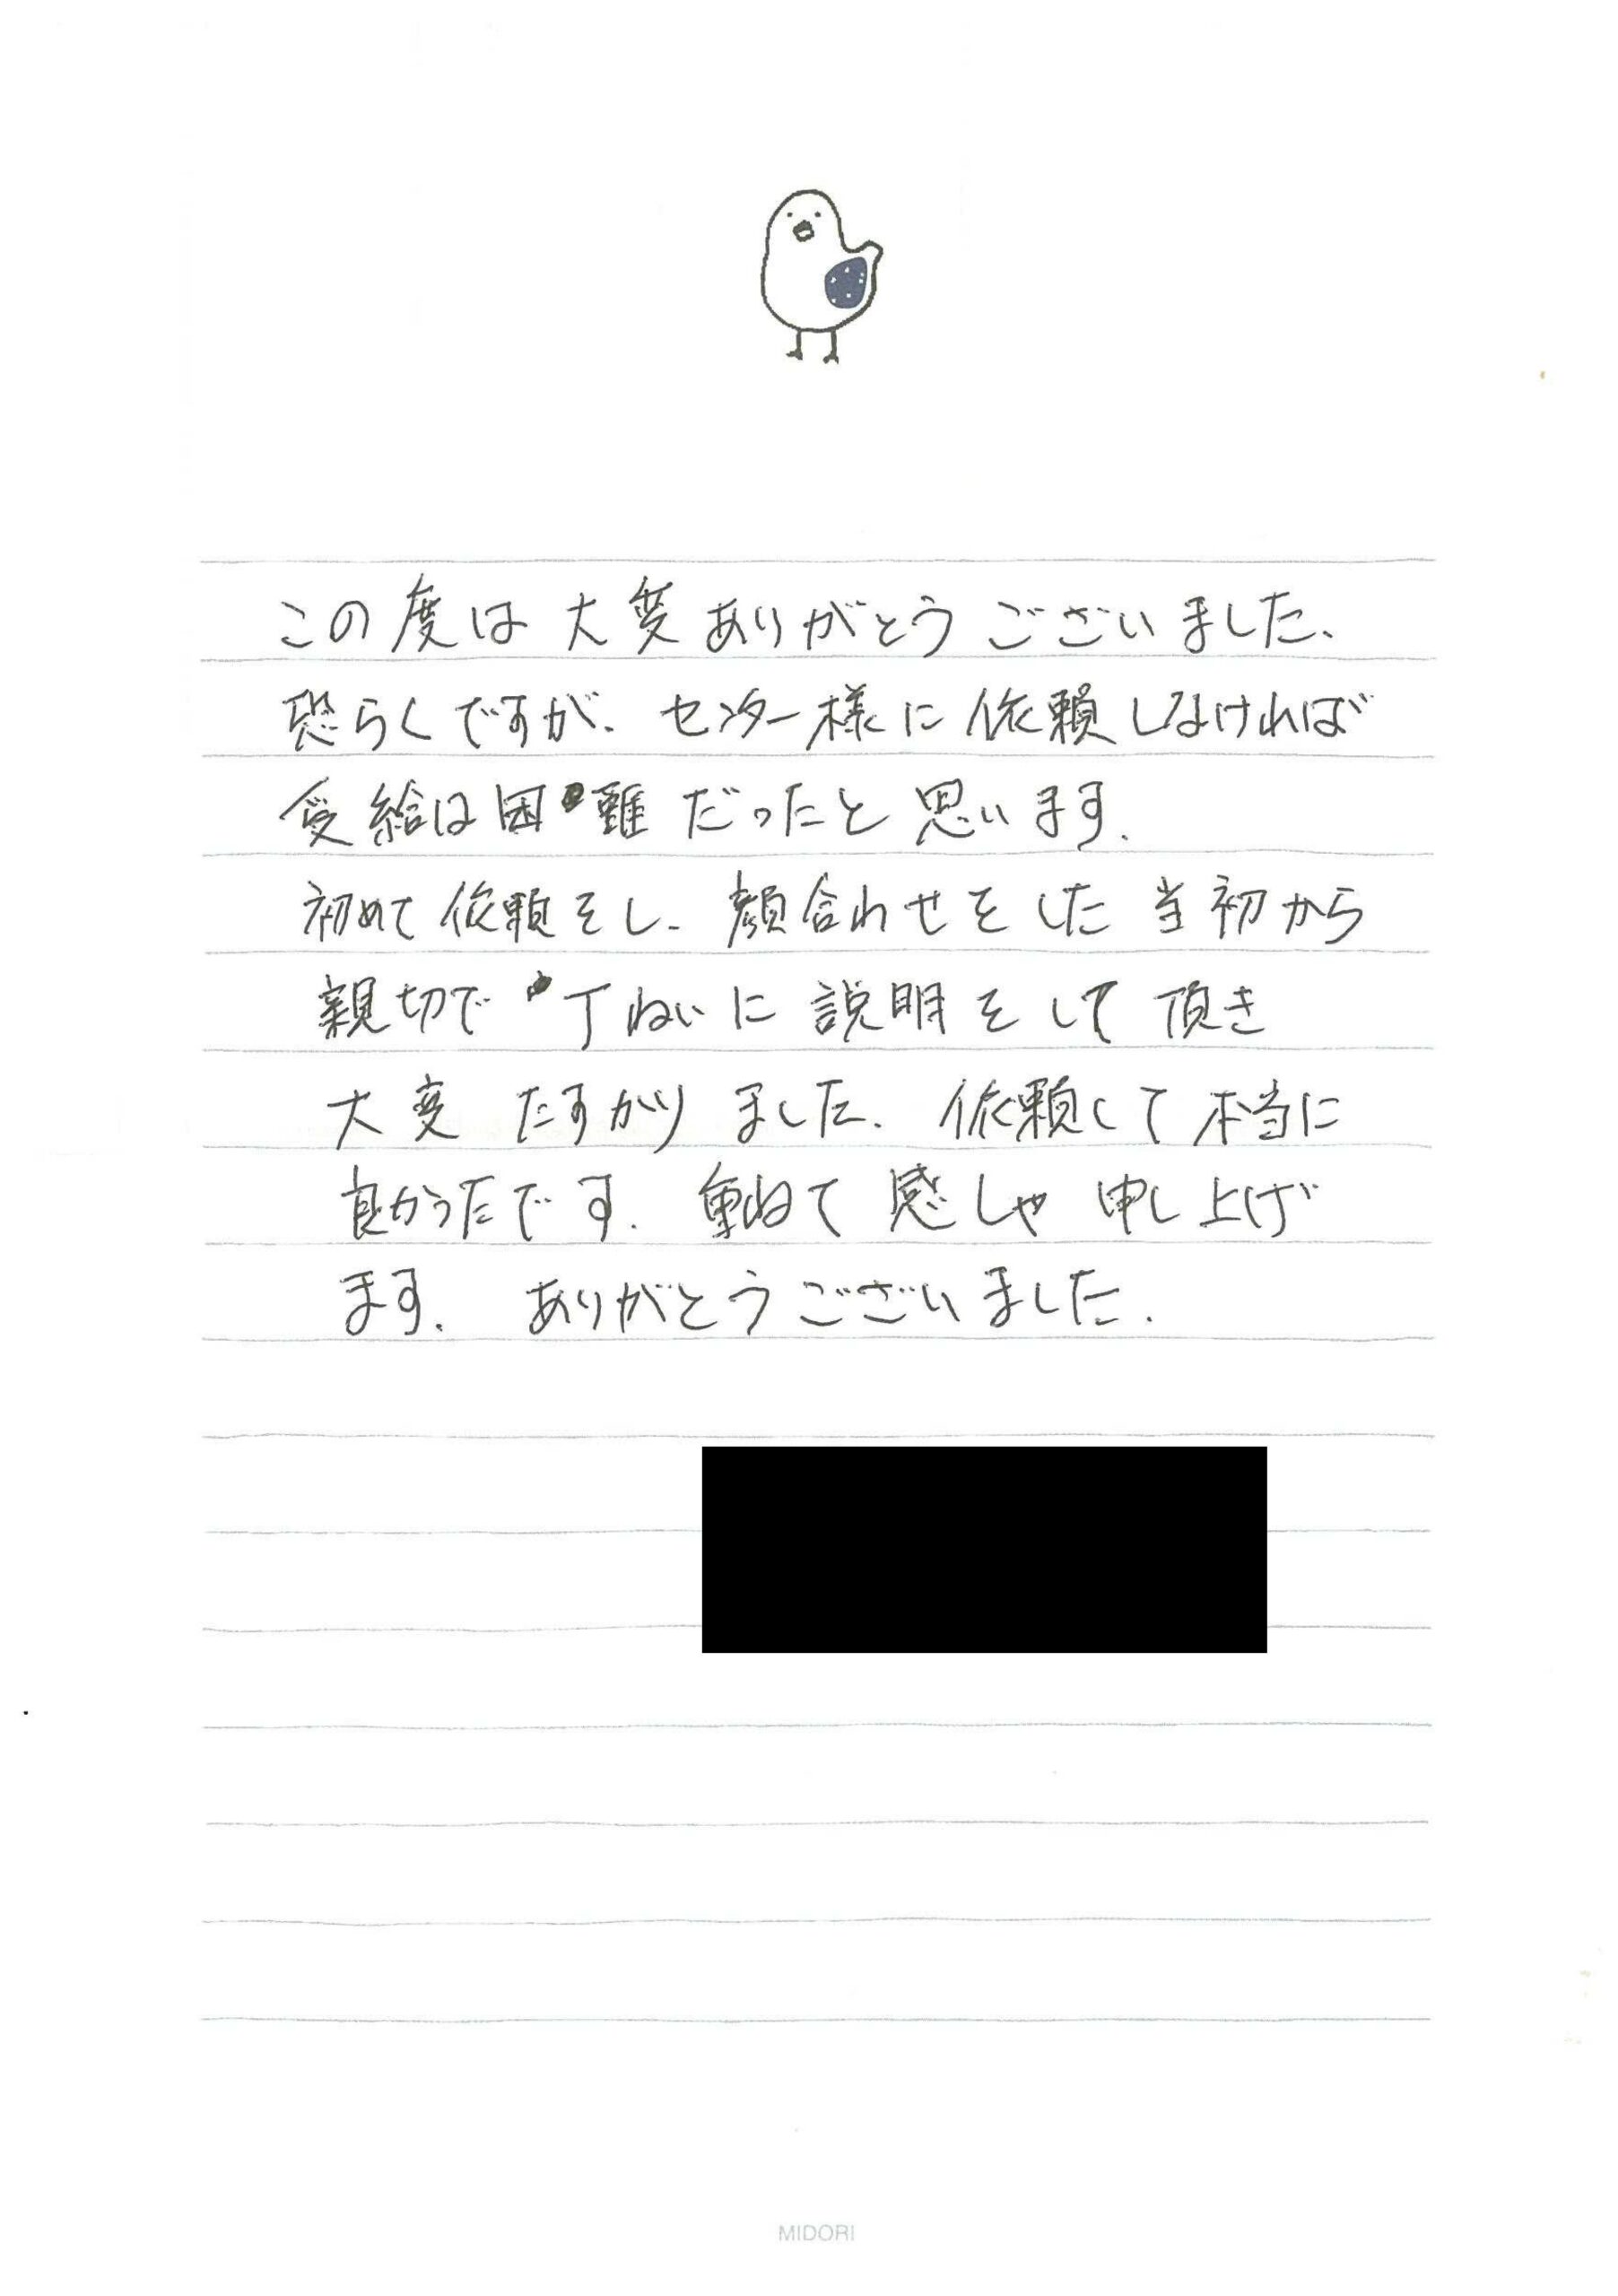 この度は大変ありがとうございました、
恐らくですが、センター様に依頼しなければ
受給は困難だったと思います.
初めて依頼をし、顔合わせをした当初から
親切で丁ねいに説明をして頂き
大変たすかりました. 依頼して本当に
良かったです. 重ねて感しゃ申し上げ
ます. ありがとうございました.
MIDORI